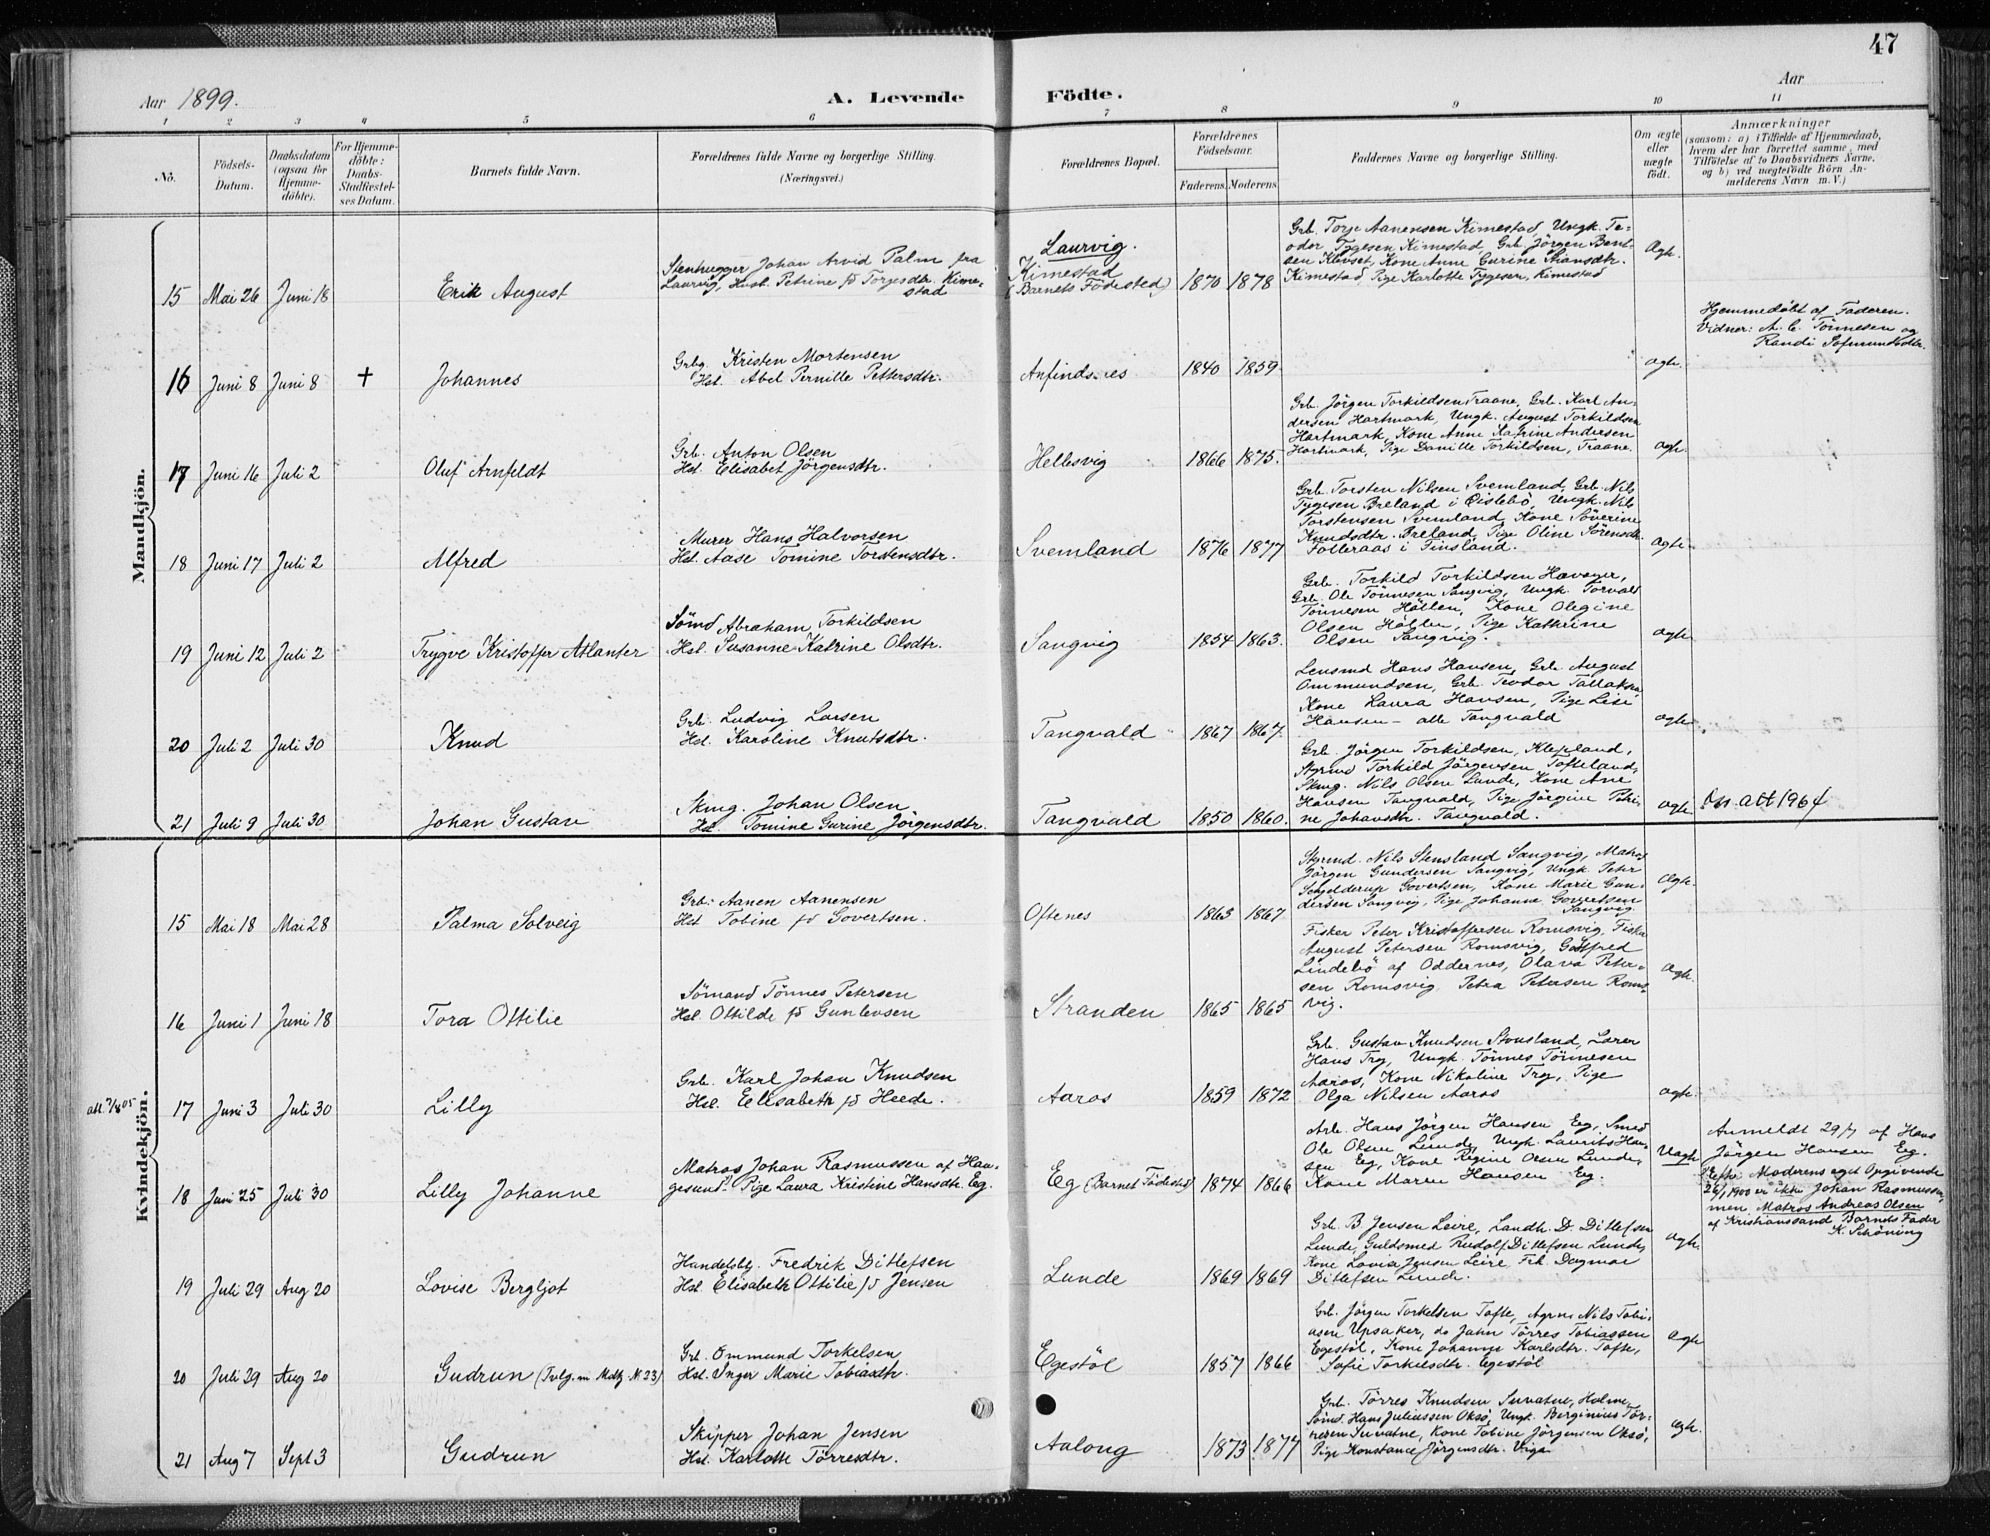 47
Aar 1899.
A. Levende Födte.
Aar
1 2 3 4 5 6 7 8 9 10 11
Nö.
Födsels-Datum.
Daabsdatum (ogsaa for Hjemme-döbte).
For Hjemme-döbte: Daabs-Stadfæstel-ses Datum.
Barnets fulde Navn.
Forældrenes fulde Navne og borgerlige Stilling.
(Næringsvei.)
Forældrenes Bopæl.
Forældrenes Födselsaar.
Faderens. Moderens.
Faddernes Navne og borgerlige Stilling.
Om ægte eller uægte födt.
Anmærkninger
(saasom: a) i Tilfælde af Hjemmedaab,
hvem der har forrettet samme, med
Tilföielse af to Daabsvidners Navne,
og b) ved uægtefödte Börn An-
melderens Navn m. V.)
Mandkjön.
15 Mai 26 Juni 18
Erik August
Stenhugger Johan Arvid Palm fra
Laurvig, Hust. Petrine fd Torgesdtr. Kime-
stad
Laurvig.
Kimestad
(Barnets Födested)
1870 1878
Grb. Torje Aanensen Kimestad, Ungk. Te-
odor Tygesen Kimestad, Grb. Jörgen Bent-
sen Klevset, Kone Anne Gurine Stiansdtr.
Kimestad, Pige Karlotte Tygesen, Kimestad
Ægte.
16 Juni 8 Juni 8 +
Johannes
Grbg. Kristen Mortensen
Hst. Abel Pernille Pettersdtr.
Anfindsnes
1840 1859
ægte.
Hjemmedöbt af Faderen.
Vidner: A. C. Tönnesen og
Randi Sofmundsdtr.
17 Juni 16 Juli 2
Oluf Arnfeldt
Grb. Anton Olsen
Hst. Elisabet Jörgensdtr.
Hellesvig
1866 1875.
Grb. Jörgen Torkildsen Traane, Grb. Karl An-
dersen Hartmark, Ungk. August Torkildsen
Hartmark, Kone Anne Katrine Andersen
Hartmark, Pige Danille Torkildsen, Traane.
ægte.
18 Juni 17 Juli 2
Alfred
Murer Hans Halvorsen
Hst. Aase Tomine Torstensdtr.
Svemland
1876 1877
Grb. Torsten Nilsen Svemland, Grb. Nils
Tygesen Breland i Øislebö, Ungk. Nils
Torstensen Svemland, Kone Söverine
Knudsdtr. Breland, Pige Oline Sörensdtr.
Folleraas i Finsland.
ægte.
19 Juni 12 Juli 2
Trygve Kristoffer Atlanter
Sömd Abraham Torkildsen
Hst. Susanne Katrine Olsdtr.
Sangvig
1854 1863.
Grb. Torkild Torkildsen Havager,
Grb. Ole Tönnesen Sangvig, Ungk. Torvald
Tönnesen Höllen, Kone Olegine
Olsen Höllen, Pige Kathrine
Olsen Sangvig.
ægte
20 Juli 2 Juli 30
Knud
Grb. Ludvig Larsen
Hst. Karoline Knutsdtr.
Tangvald
1867 1867.
Lensmd Hans Hansen, Grb. August
Ommundsen, Grb. Teodor Tallaksen,
Kone Laura Hansen, Pige Lise
Hansen - alle Tangvald
ægte
21 Juli 9 Juli 30
Johan Gustav
Skmg. Johan Olsen
Hst. Tomine Gurine Jörgensdtr.
Tangvald
1850 1860.
Grb. Jörgen Torkildsen, Klepland,
Styrmd Torkild Jörgensen Tofteland,
Skmg. Nils Olsen Lunde, Kone Ane
Hansen Tangvald, Pige Jörgine Petri-
ne Johansdtr. Tangvald.
ægte
att 1964
Kvindekjön.
15 Mai 18 Mai 28
Palma Solveig
Grb. Aanen Aanensen
Hst Tobine fd Govertsen.
Oftenes
1863 1867
Styrmd. Nils Stensland Sangvig, Matros
Jörgen Gundersen Sangvig, Ungk. Peter
Schjelderup Govertsen, Kone Marie Gun-
dersen Sangvig, Pige Johanne Govertsen
Sangvig.
Ægte.
16 Juni 1 Juni 18
Tora Ottilie
Sömand Tönnes Petersen
Hst. Ottilde fd Gunlevsen
Stranden
1865 1865
Fisker Peter Kristoffersen Romsvig, Fisker
August Petersen Romsvig, Gottfred
Lindebö af Oddernes, Olava Peter-
sen Romsvig, Petra Petersen Roms-
vig.
Ægte.
att 7/8 05
17 Juni 3 Juli 30
Lilly
Grb. Karl Johan Knudsen
Hst. Elisabeth fd Heede.
Aaros
1859 1872
Grb. Gustav Knudsen Stousland, Lærer
Hans Try, Ungk. Tönnes Tönnesen
Aaros, Kone Nikoline Try, Pige
Olga Nilsen Aaros
ægte.
18 Juni 25 Juli 30
Lilly Johanne
Matros Johan Rasmussen af Hau-
gesund. Pige Laura Kristine Hansdtr. Eg.
Eg (Barnet Födested)
1874 1866
Arb. Hans Jörgen Hansen Eg, Smed
Ole Olsen Lunde, Ungk. Laurits Han-
sen Eg, Kone Regine Olsen Lunde,
Kone Maren Hansen Eg.
Uægte
Anmeldt 29/7 af Hans
Jörgen Hansen Eg.
Efter Moderens eget Opgivende
26/1 1900 er ikke Johan Rasmussen
men Matros Andreas Olsen
af Kristianssand Barnets Fader
K. Schöning
19 Juli 29 Aug 20
Lovise Bergljot
Handelsbg. Fredrik Ditlefsen
Hst. Elisabeth Ottilie fd Jensen
Lunde
1869 1869
Grb. B. Jensen Leire, Landh. D. Ditlefsen
Lunde, Guldsmed Rudolf Ditlefsen Lunde,
Kone Lovisa Jensen Leire Frk. Dagmar
Ditlefsen Lunde.
ægte.
20 Juli 29 Aug 20
Gudrun (Tvlg. m Mdkj. N 23)
Grb. Ommund Torkelsen
Hst. Inger Marie Tobiasdtr.
Egestöl
1857 1866
Grb. Jörgen Torkelsen Tofte, Nils Tobi-
asen Upsaker, do Jahn Törres Tobiassen
Egestöl, Kone Johanne Karlsdtr. Tofte,
Sofie Torkilsdtr. Egestöl
ægte
21 Aug 7 Sept 3
Gudrun
Skipper Johan Jensen
Hst. Karlotte Törresdtr.
Aalong
1873 1877
Grb. Törres Knudsen Suvatne, Holme,
Sömd. Hans Juliussen Oksö, Ungk. Berginius Tör-
resen Suvatne, Kone Tobine Jörgensen Oksö,
Pige Konstance Jörgensdtr. Vige
Ægte.